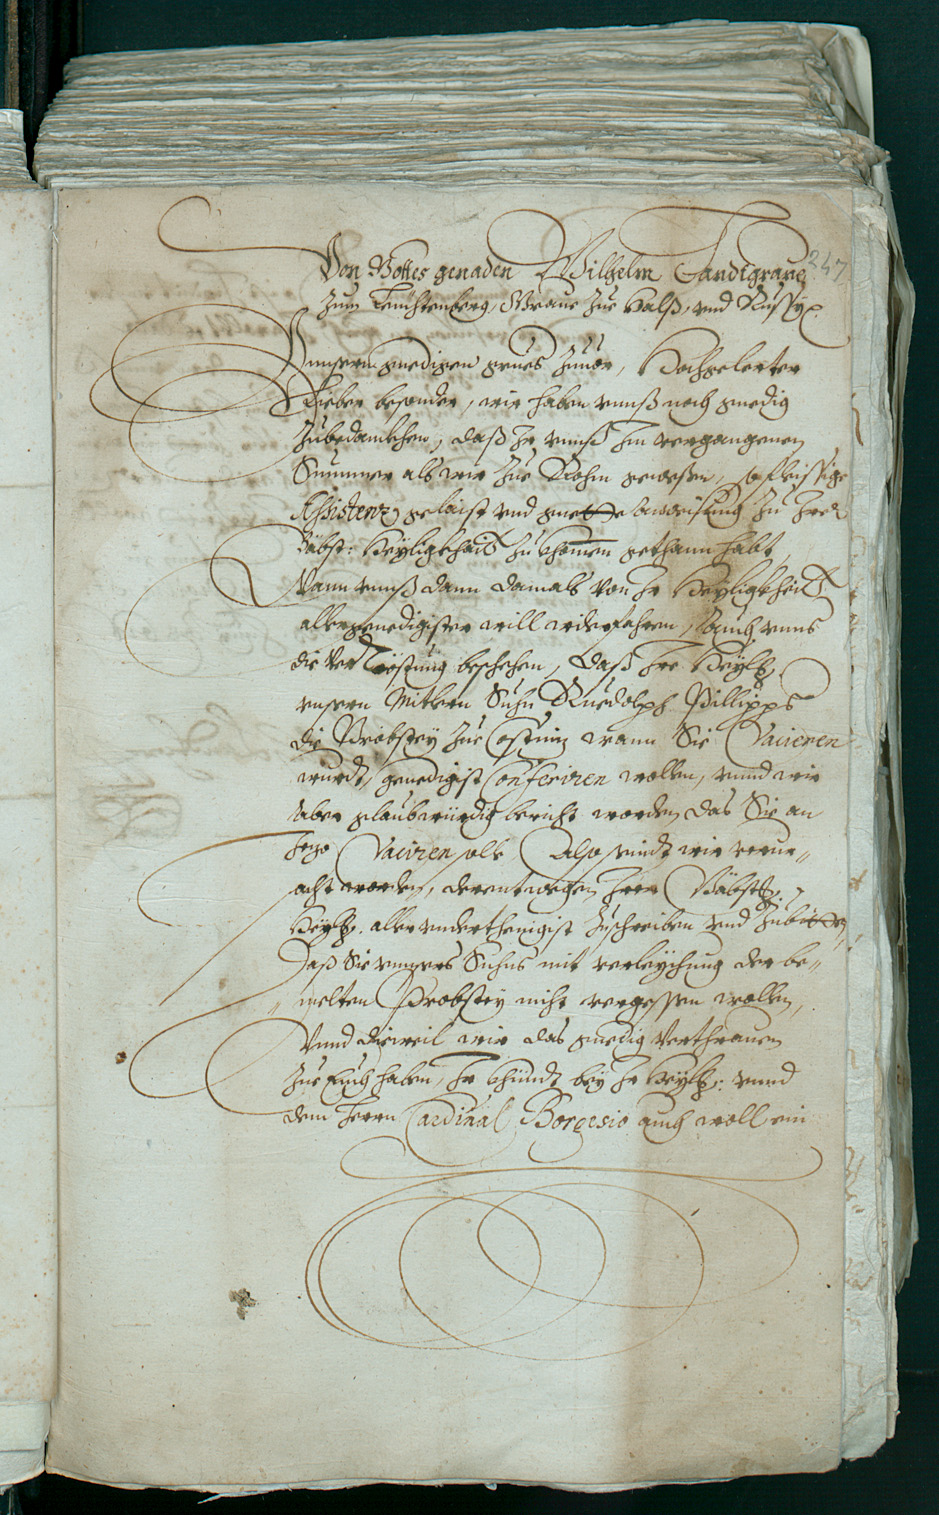 247
Von Gottes genaden Wilhelm Landtgraue
zum Leuchtenberg, Graue zue Halß, vnd
Vnnsern gnedigen grues zuuor, Hochgelerter
Lieber besonder, wir haben vnnß noch gnedig
zubedankhen, daß Ir vnnß Im vergangenen
Summer als wir zue Rohm gewesen, so fleissige
Assistenz gelaist vnd gnette anweisung zu Irer
Bäbst: Heyligkhait zu khomen gethann habt,
Wann vnnß dann damals von Ir Heyligkheit
allergenedigister will widerfahren, Auch vnns
die Vertröstung beschehen, daß Ire Heylt.
vnsern Mitlern Suhn Ruedolph Phillipps
die Probstey zue wann Sie Vacieren
wurdt, genedigist Conferiren wollen, vnnd wir
Aber glaubwürdig bericht worden das Sie an
Jezo Vaciren solle, Also sindt wir verur„
acht worden, derentwegen Irer Bäbstl.
Heylt. aller vnderthenigist zuschreiben vnd zubitten,
Daß Sie vnnsers Suhns mit verleyhung der be„
„melten Probstey nicht vergessen wollen,
Vnnd dieweil wir das gnedig Verthrauen
zue Euch haben, Ir khündt bey Ir Heylt: vnnd
dem herrn Cardinal Borgesio auch woll ein